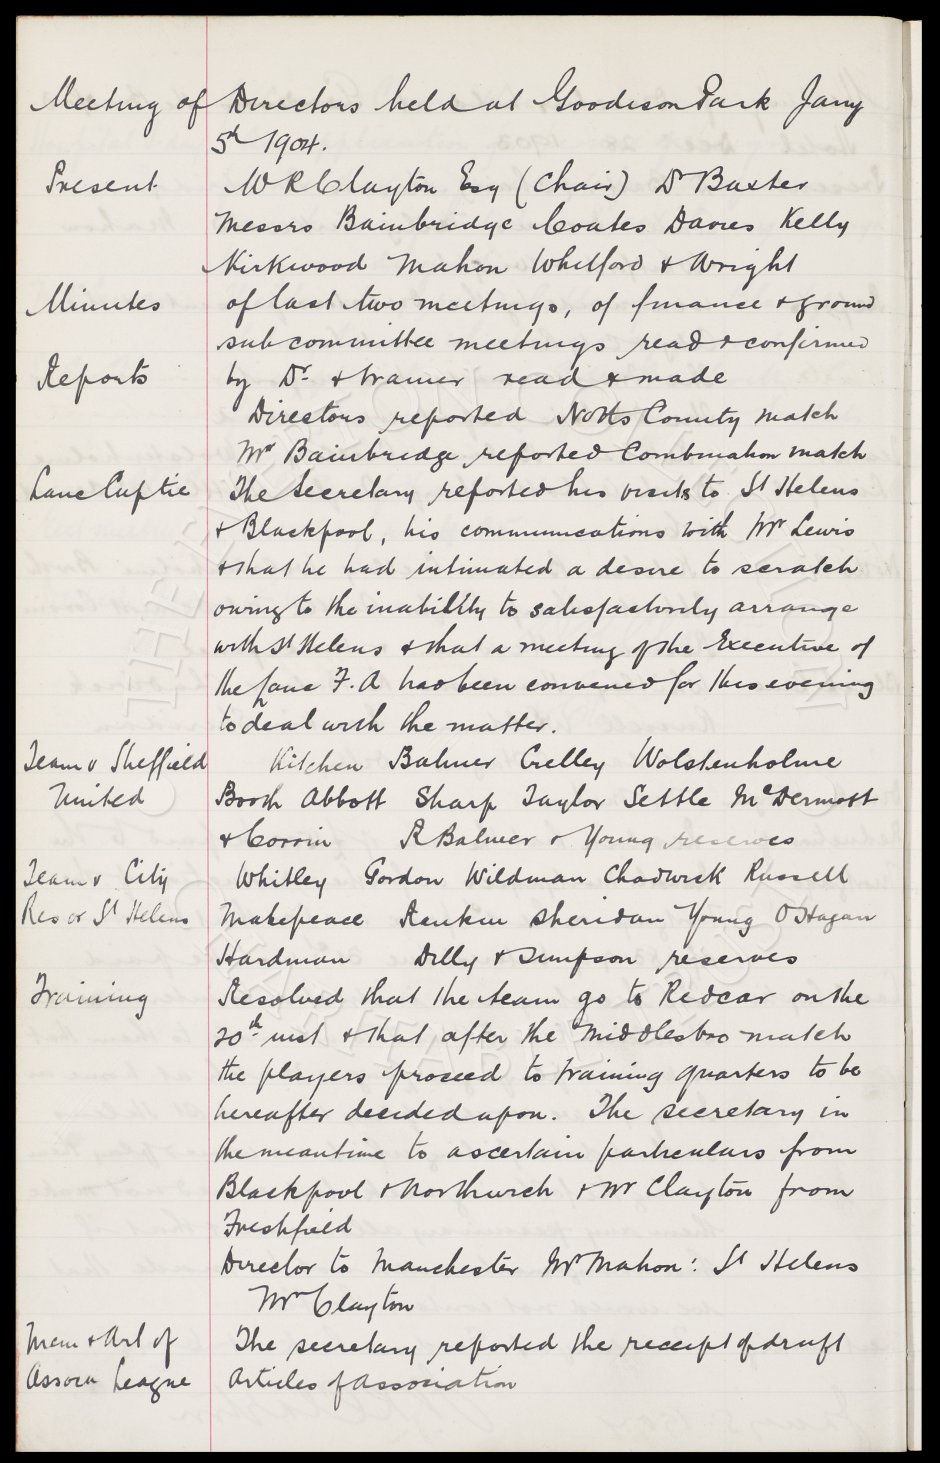 Meeting of Directors held at Goodison Park Jany
5th 1904.
Present W R Clayton Esq (Chair) Dr Baxter
Messrs Bainbridge Coates Davies Kelly
Kirkwood Mahon Whitford & Wright
Minutes of last two meetings, of finance & ground
sub committee meetings read & confirmed
Reports by Dr. & trainer read & made
Directors reported Notts County match
Mr Bainbridge reported Combination match
Lanc Cup tie The Secretary reported his visits to St Helens
& Blackpool, his communications with Mr Lewis
& that he had intimated a desire to scratch
owing to the inability to satisfactorily arrange
with St Helens & that a meeting of the Executive of
the Lanc F.A had been convened for this evening
to deal with the matter.
Team v Sheffield Kitchen Balmer Crelley Wolstenholme
United Booth Abbott Sharp Taylor Settle McDermott
& Corrin R Balmer & Young reserves
Team v City Whitley Gordon Wildman Chadwick Russell
Res or St Helens Makepeace Rankin Sheridan Young O'Hagan
Hardman Dilly & Simpson reserves
Training Resolved that the team go to Redcar on the
20th inst & that after the Middlesbro match
the players proceed to training quarters to be
hereafter decided upon. The secretary in
the meantime to ascertain particulars from
Blackpool & Northwich & Mr Clayton from
Freshfield
Director to Manchester Mr Mahon: St Helens
Mr Clayton
Mem & Art of The secretary reported the receipt of draft
Assocn League Articles of Association